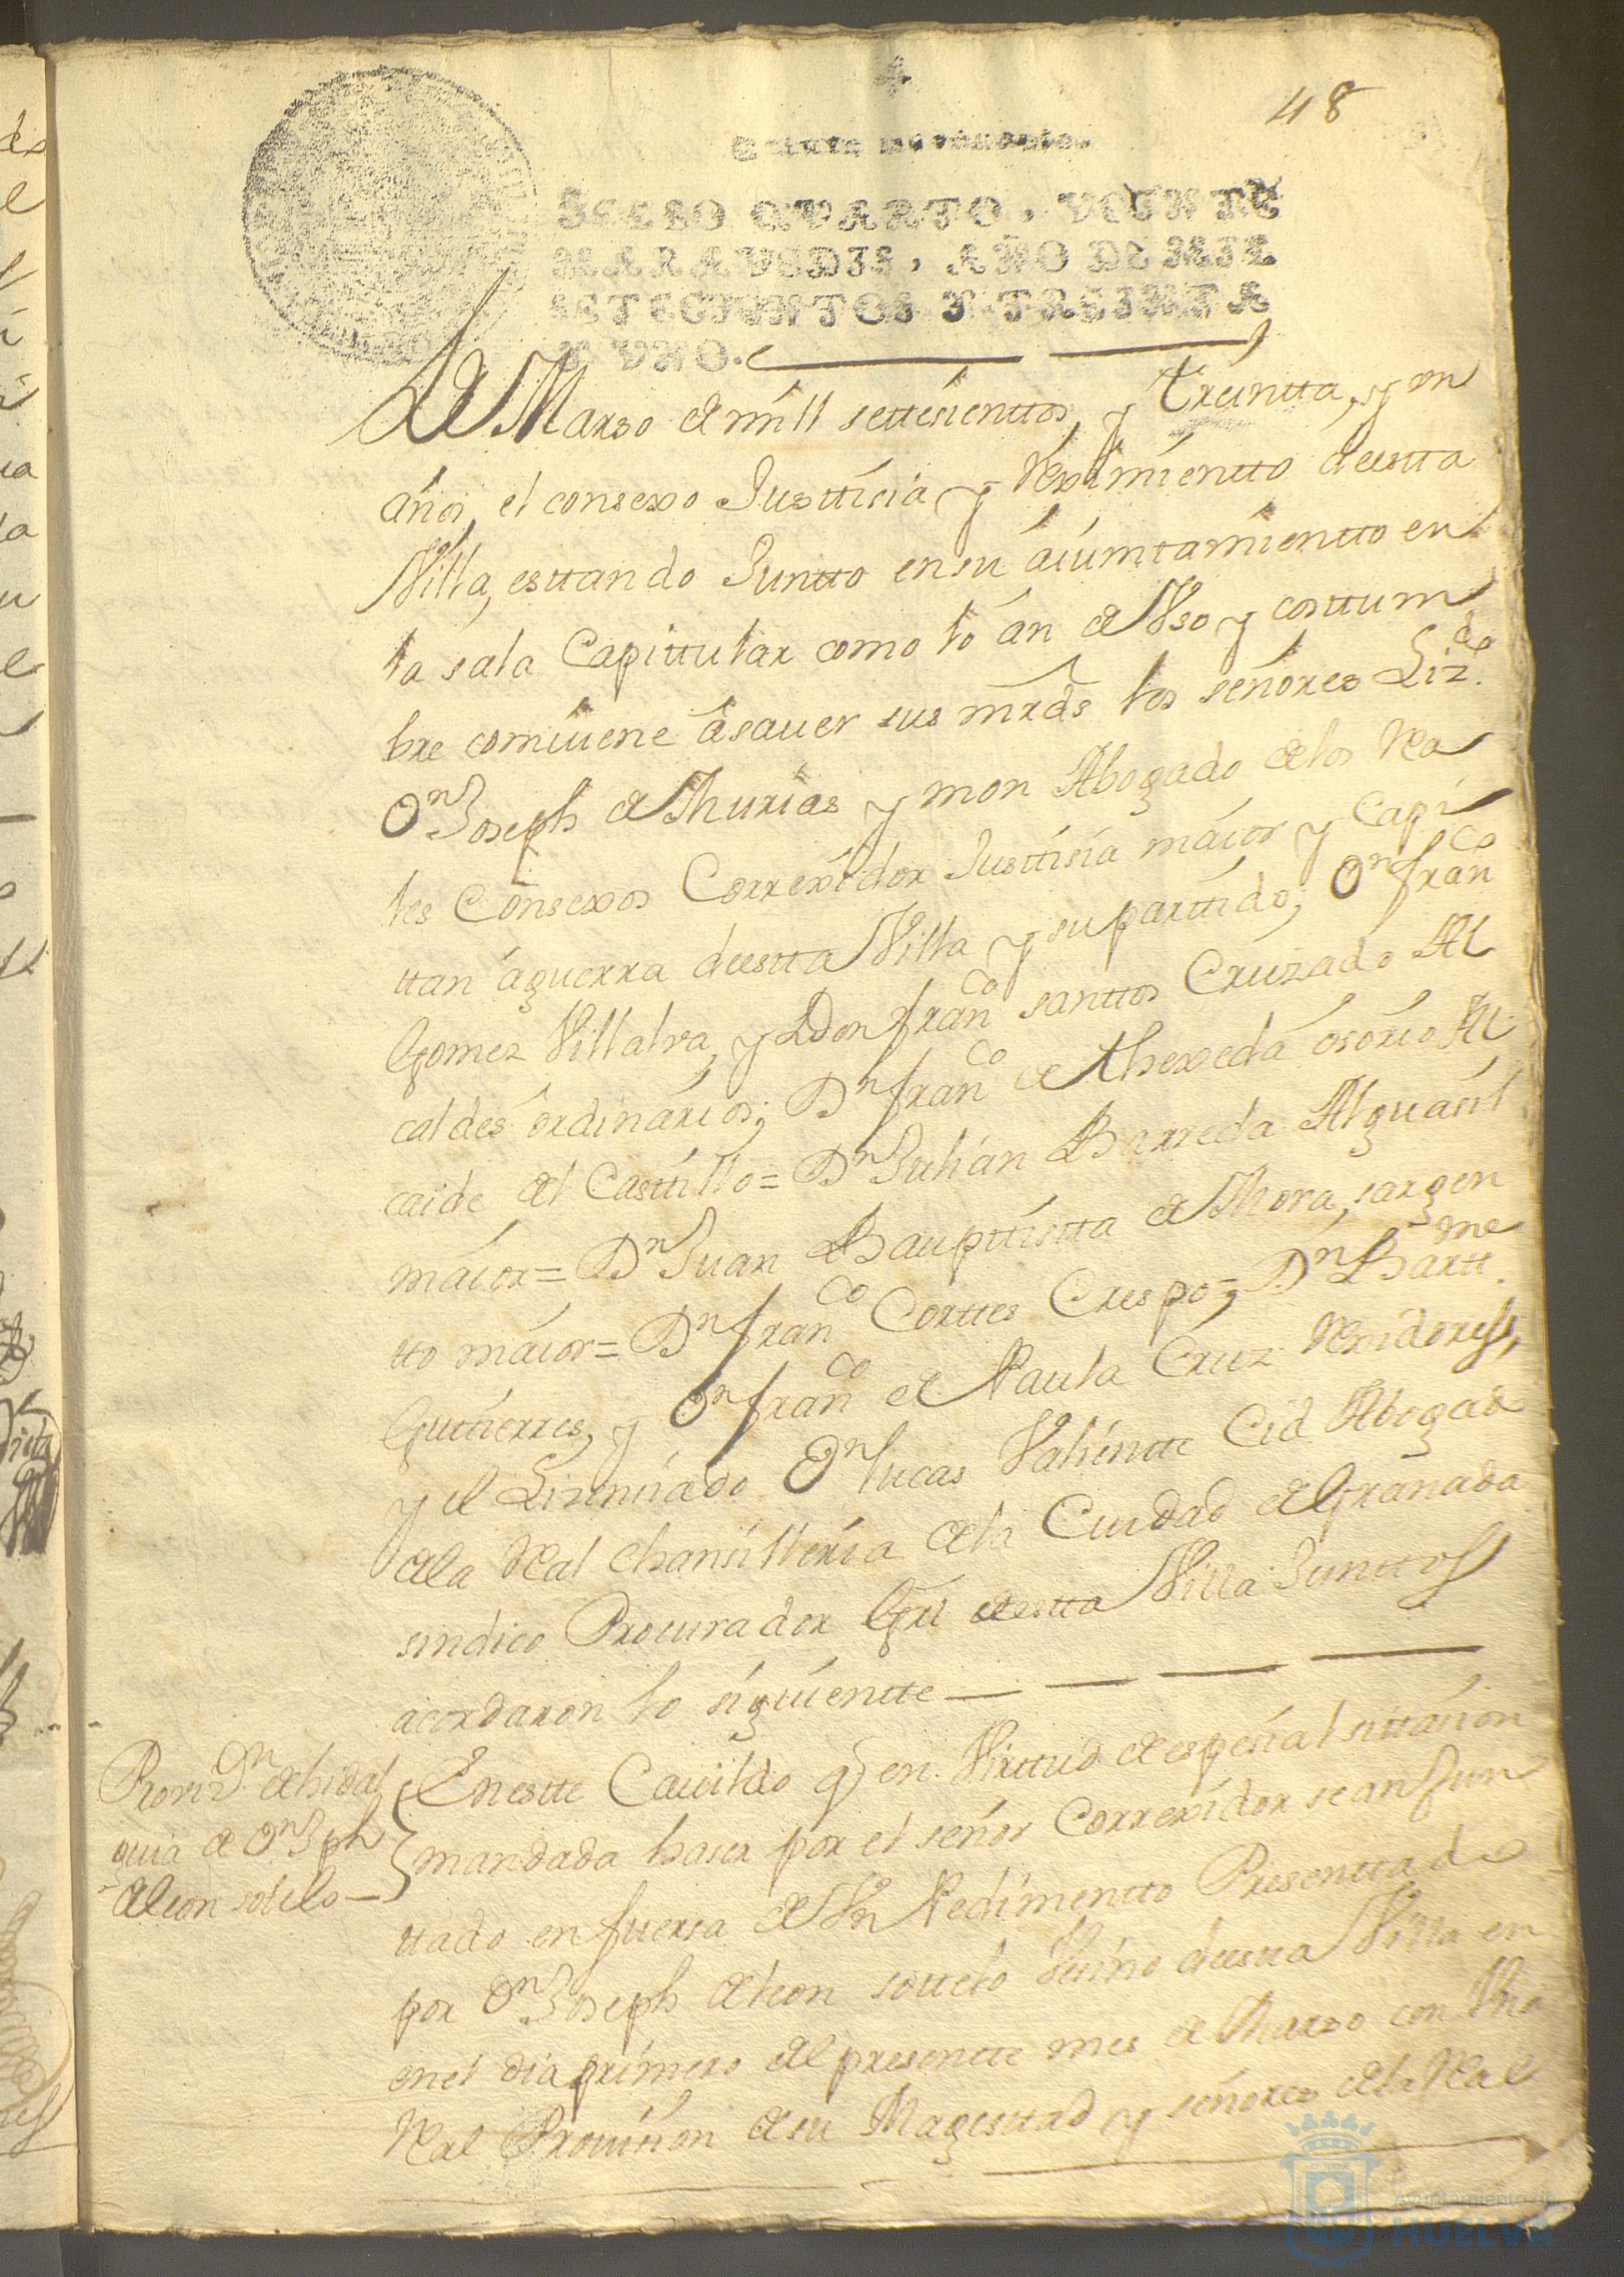 48
SELLO QVARTO, VEINTE
MARAVEDIS, AÑO DE MIL
SETECIENTOS Y TREINTA
Y VNO.
de Marso de mill settesienttos, y treintta, y un
años, el consexo Justtisia y Reximientto deestta
Villa, esttando Juntto en su aiumtamientto en
la sala Capittular como lo an de Vso y costtum
bre combiene a sauer sus mrds los señores Liz.do
Dn Joseph de Thurias y mon Abogado de los Rea
les Consexos Correxidor Justtisia maior y Capi
ttan aguerra deestta Villa y su parttido; Dn franco
Gomez Villalva, y Don franco santtos Cruzado Al
caldes ordinarios; Dn franco de Thexeda osorio Al
caide del Casttillo = Dn Julian Barreda Alguasil
maior = Dn Juan Bauptistta de Mora, sargen
tto maior = Dn franco Corttes Crespo = Dn Bartt.me
Guttierres, y Dn franco de Paula Cruz Rexidores,
y el Lizenciado Dn lucas Valientte Cid Abogado
de la Real chansilleria de la Ciudad de Granada
sindico Procurador Grl de estta Villa Junttos
acordaron lo siguientte
Provon de hidal
guia de Dn Jph
de leon sotelo
En estte Cauildo q en Virttud de espesial sittasion
mandada haser por el señor Correxidor se an Jun
ttado en fuersa de Vn Pedimentto Presenttado
por Dn Joseph de leon sottelo Vesino deestta Villa en
en el dia primero del presentte mes de Marso con Vna
Real Provision de su Magesttad y señores de la Real
Ayuntamiento de
HUELVA